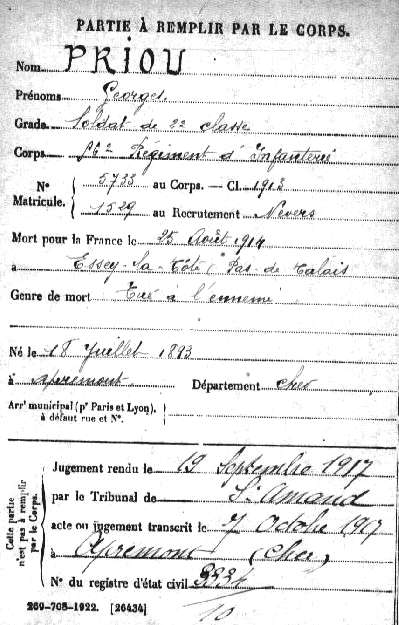 PARTIE À REMPLIR PAR LE CORPS.
Nom PRIOU
Prénoms Georges
Grade Soldat de 2e classe
Corps 56e Régiment d'Infanterie
N° Matricule. { 5733 au Corps. — Cl. 1913
1529 au Recrutement Nevers
Mort pour la France le 25 Août 1914
à Essey-la-Côte (Pas-de-Calais
Genre de mort Tué à l'ennemi
Né le 18 Juillet 1893
à Apremont Département Cher
Arr' municipal (p' Paris et Lyon),
à défaut rue et N°.
Cette partie n'est pas à remplir par le Corps.
Jugement rendu le 19 Septembre 1917
par le Tribunal de St Amand
acte ou jugement transcrit le 7 Octobre 1917
à Apremont (Cher)
N° du registre d'état civil
10
269-708-1922. [26434]